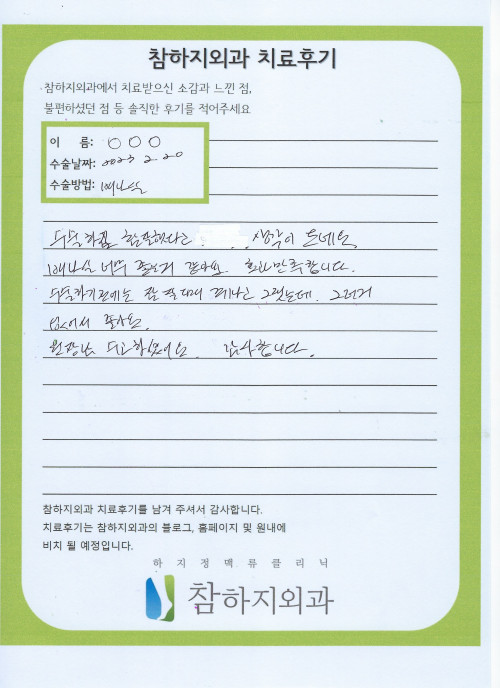 참하지외과 치료후기
참하지외과에서 치료받으신 소감과 느낀 점,
불편하셨던 점 등 솔직한 후기를 적어주세요
이 름: ○○○
수술날짜: 2023 2 20
수술방법: 베나실
수술하길 잘했다고 생각이 드네요
베나실 너무 좋은거 같아요. 회복만족합니다.
수술하기전에는 잘 때마다 쥐나고 그랬는데. 그런거
없어서 좋아요.
원장님 수고하셨어요. 감사합니다.
참하지외과 치료후기를 남겨 주셔서 감사합니다.
치료후기는 참하지외과의 블로그, 홈페이지 및 원내에
비치 될 예정입니다.
하지정맥류클리닉
참하지외과